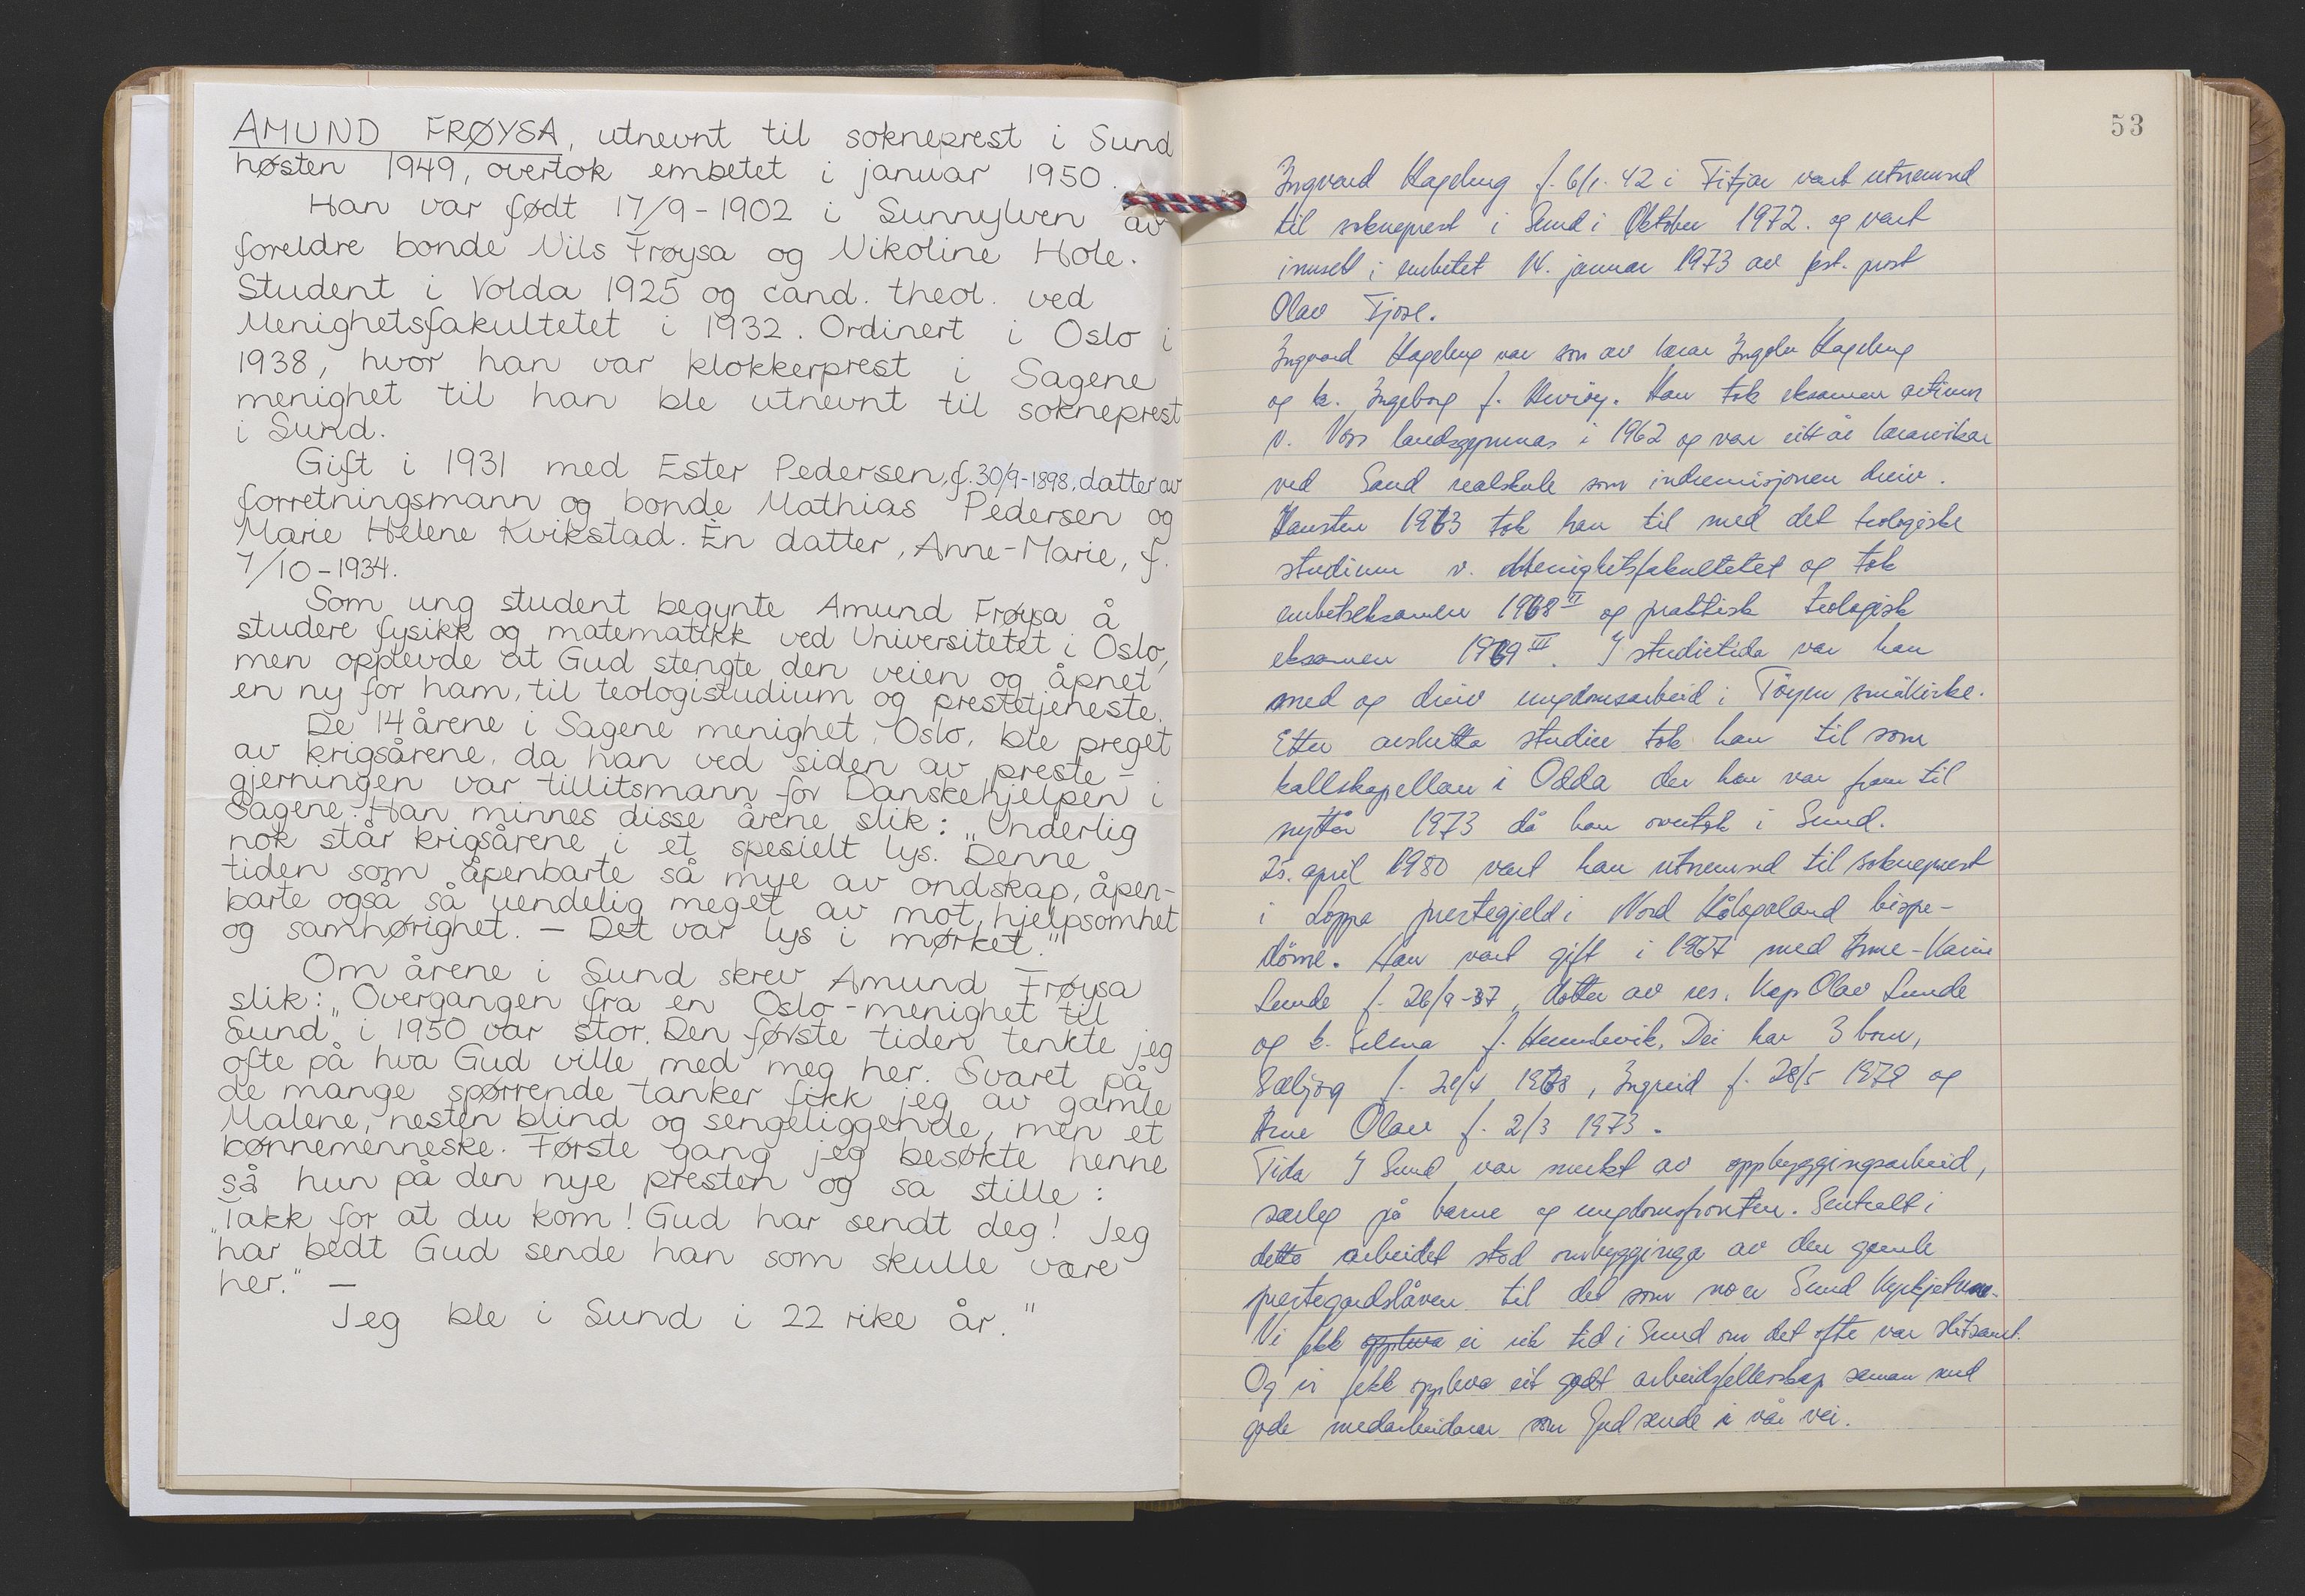 AMUND FRØYSA, utnevnt til sokneprest i Sund
høsten 1949, overtok embetet i januar 1950.
Han var født 17/9-1902 i Sunnylven av
foreldre bonde Nils Frøysa og Nikoline Hole.
Student i Volda 1925 og cand. theol. ved
Menighetsfakultetet i 1932. Ordinert i Oslo i
1938, hvor han var klokkerprest i Sagene
menighet til han ble utnevnt til sokneprest
i Sund.
Gift i 1931 med Ester Pedersen, f. 30/9-1898, datter av
forretningsmann og bonde Mathias Pedersen og
Marie Helene Kvikstad. En datter, Anne-Marie, f.
7/10-1934.
Som ung student begynte Amund Frøysa å
studere fysikk og matematikk ved Universitetet i Oslo,
men opplevde at Gud stengte den veien og åpnet
en ny for ham, til teologistudium og prestetjeneste.
De 14 årene i Sagene menighet, Oslo, ble preget
av krigsårene, da han ved siden av preste-
gjerningen var tillitsmann for Danskehjelpen i
Sagene. Han minnes disse årene slik: „Underlig
nok står krigsårene i et spesielt lys. Denne
tiden som åpenbarte så mye av ondskap, åpen-
barte også så uendelig meget av mot, hjelpsomhet
og samhørighet. – Det var lys i mørket."
Om årene i Sund skrev Amund Frøysa
slik: „Overgangen fra en Oslo-menighet til
Sund i 1950 var stor. Den første tiden tenkte jeg
ofte på hva Gud ville med meg her. Svaret på
de mange spørrende tanker fikk jeg av gamle
Malene, nesten blind og sengeliggende, men et
bønnemenneske. Første gang jeg besøkte henne
så hun på den nye presten og sa stille:
„Takk for at du kom! Gud har sendt deg! Jeg
har bedt Gud sende han som skulle være
her." –
Jeg ble i Sund i 22 rike år."
53
Ingvard Hageberg f. 6/1. 42 i Fitjar vart utnemnd
til sokneprest i Sund i Oktober 1972. og vart
innsett i embetet 14. januar 1973 av fst. prost
Olav Tjose.
Ingvard Hageberg var son av lærar Ingolv Hageberg
og k. Ingeborg f. Hovøy. Han tok eksamen artium
v. Voss landsgymnas i 1962 og var eitt år lærarvikar
ved Sand realskule som indremisjonen dreiv.
Hausten 1963 tok han til med det teologiske
studium v. Menighetsfakultetet og tok
embetseksamen 1968 II og praktisk teologisk
eksamen 1969 III. I studietida var han
med og dreiv ungdomsarbeid i Tøyen småkirke.
Etter avslutta studier tok han til som
kallskapellan i Odda der han var fram til
nyttår 1973 då han overtok i Sund.
25. april 1980 vart han utnemnd til sokneprest
i Loppa prestegjeld i Nord Hålogaland bispe-
døme. Han vart gift i 1967 med Anne-Karin
Lunde f. 26/9-37, dotter av res. kap Olav Lunde
og k. Selma f. Hunnkevik. Dei har 3 born,
Solbjørg f. 21/4 1968, Ingreid f. 28/5 1970 og
Arne Olav f. 2/3 1973.
Tida I Sund var merkt av oppbyggingsarbeid,
særleg på barne og ungdomsfronten. Sentralt i
dette arbeidet stod ombygginga av den gamle
prestegardslåven til det som no er Sund Kyrkjetun.
Vi fekk oppleva ei rik tid i Sund om det ofte var slitsamt.
Og vi fekk oppleva eit godt arbeidsfellerskap saman med
gode medarbeidarar som Gud sende i vår vei.